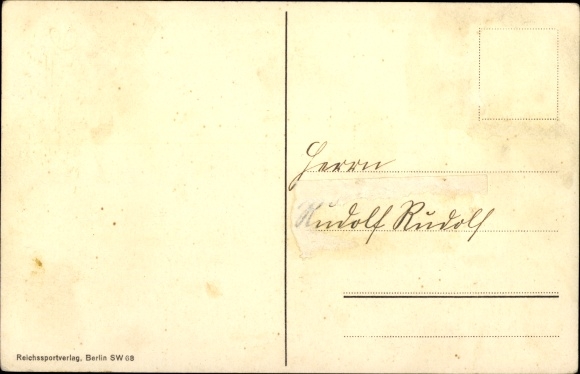 Herrn
Rudolf Rudolf
Reichssportverlag, Berlin SW 68